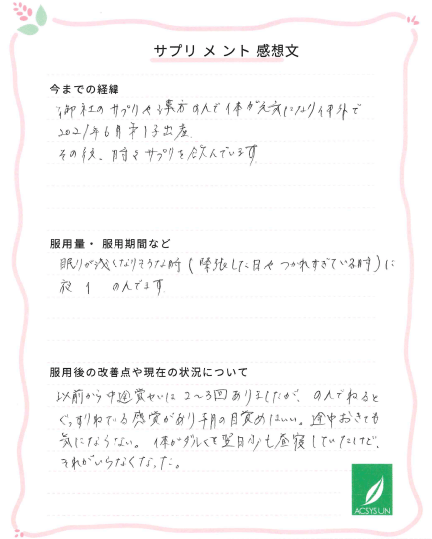 サプリメント感想文
今までの経緯
御社のサプリや漢方のんで体が元気になり体外で
2021年6月第1子出産
その後、時々サプリを飲んでいます
服用量・服用期間など
眠りが浅くなりそうな時(緊張した日やつかれすぎている時)に
夜 1 のんでます
服用後の改善点や現在の状況について
以前から中途覚せいは2〜3回ありましたが、のんでねると
ぐっすりねている感覚があり朝の目覚めはいい。途中おきても
気にならない。体がダルくて翌日も昼寝していたけど、
それがいらなくなった。
ACSYSUN